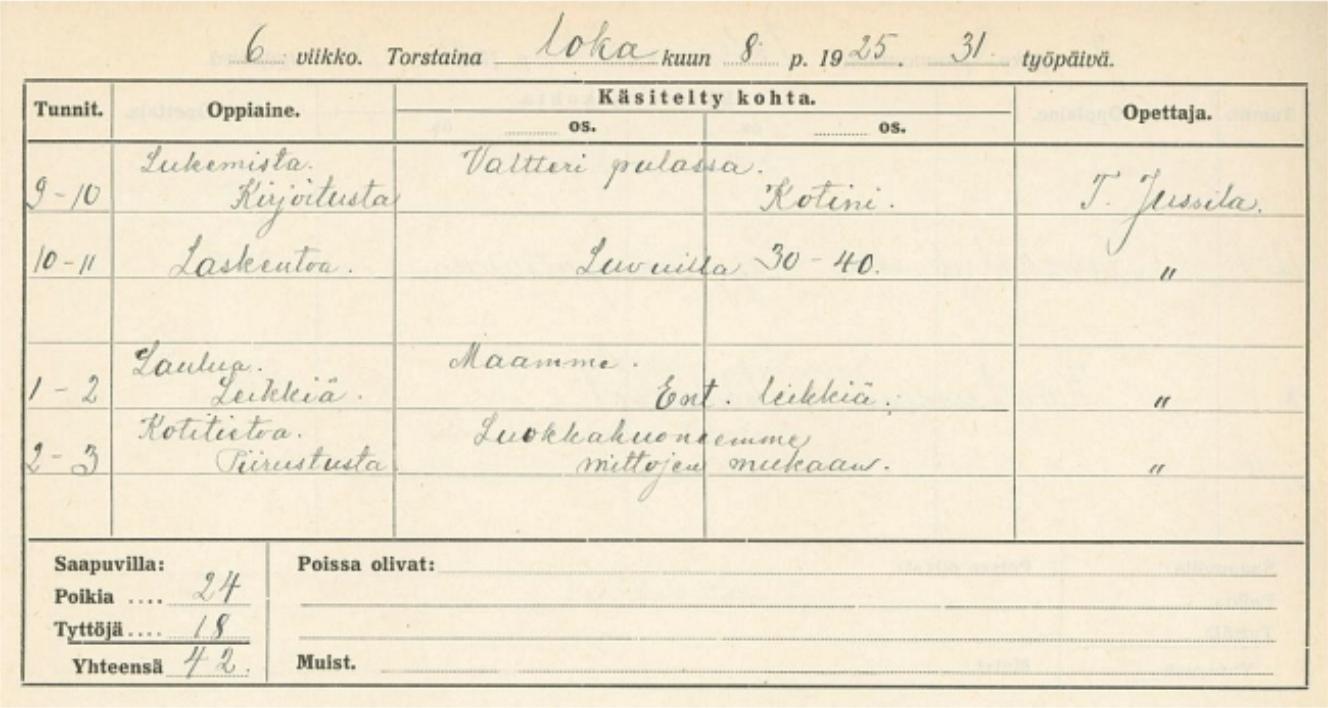 6 viikko. Torstaina loka kuun 8 p. 1925. 31 työpäivä.
Tunnit. Oppiaine. Käsitelty kohta. Opettaja.
os. os.
Lukemista. Valtteri pulassa.
9-10 Kirjoitusta Kotini. T. Jussila.
10-11 Laskentoa. Luvuilla 30-40. "
Laulua. Maamme.
1-2 Leikkiä. Ent. leikkiä. "
Kotitietoa. Luokkahuoneemme
2-3 Piirustusta mittojen mukaan. "
Saapuvilla: Poissa olivat:
Poikia .... 24
Tyttöjä .... 18
Yhteensä 42. Muist.